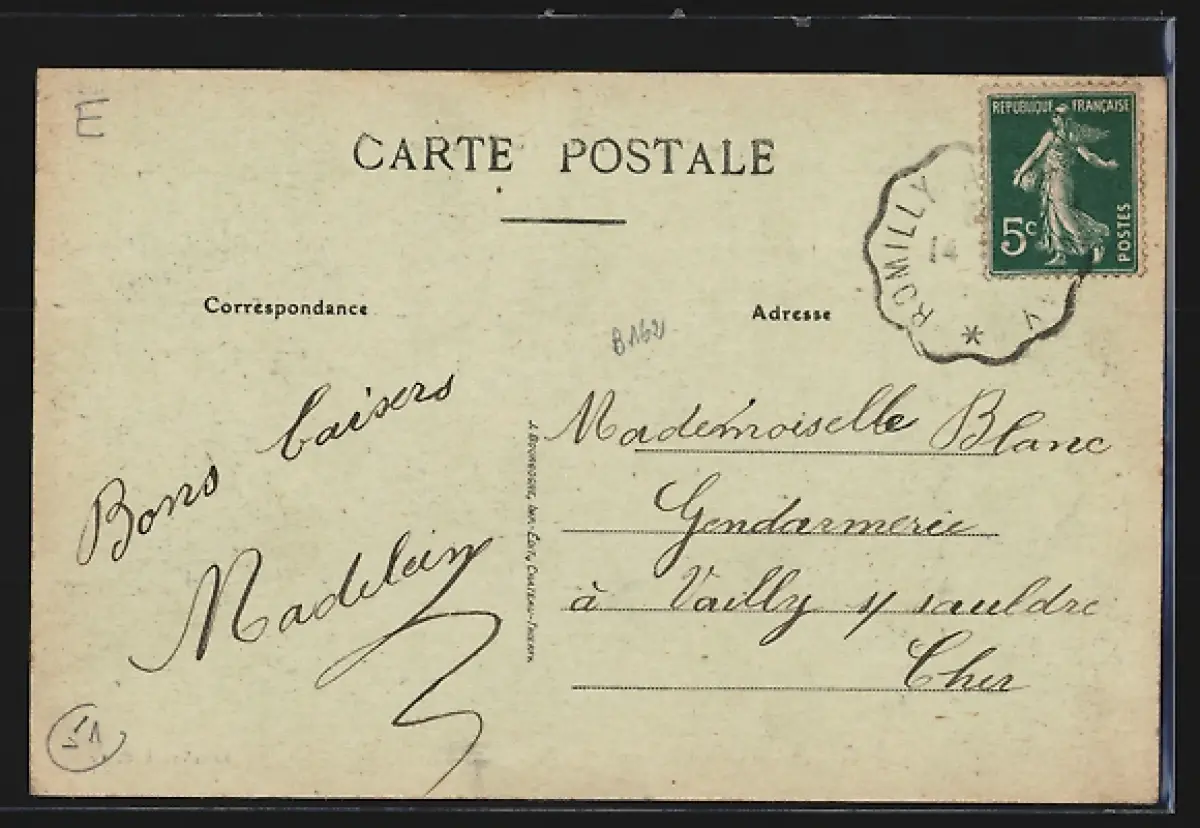 E
CARTE POSTALE
REPUBLIQUE FRANÇAISE
5c
POSTES
ROMILLY
14
Y
*
Correspondance
Adresse
B162
Bons baisers
Madelein
J. BOURGOGNE, IMP.-ÉDIT., CHATEAU-THIERRY.
Mademoiselle Blanc
Gendarmerie
à Vailly s/ sauldre
Cher
51